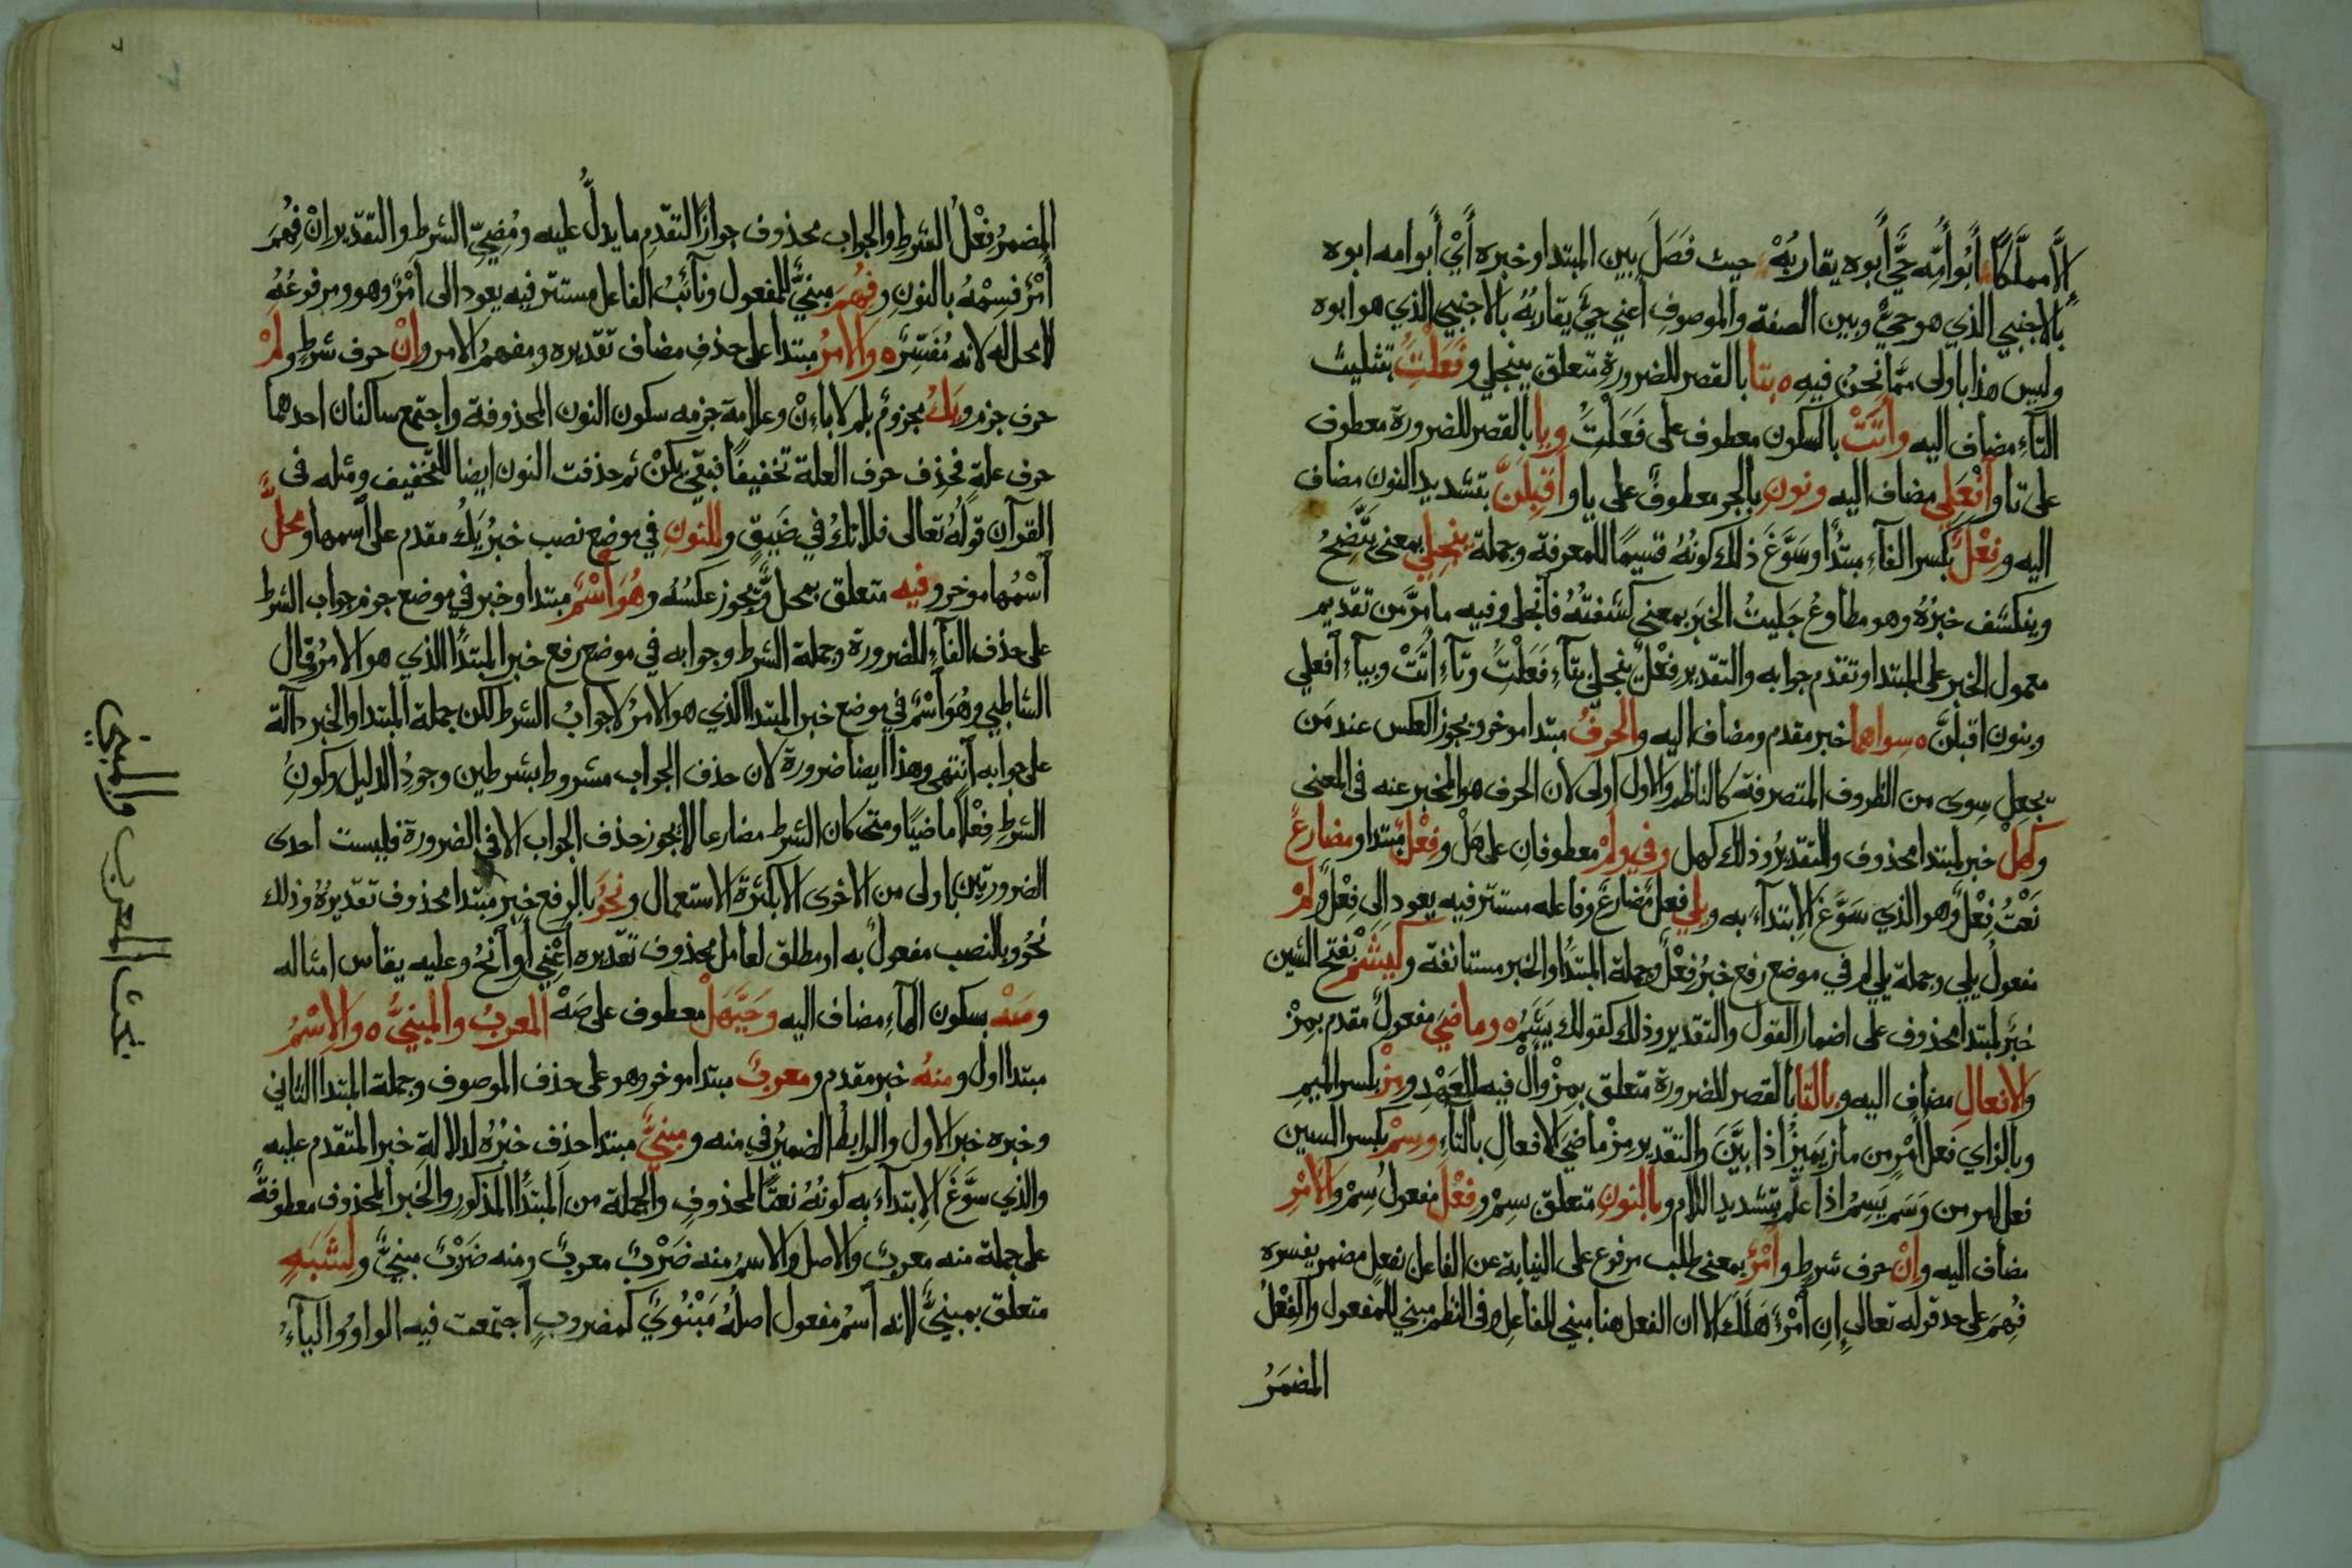 إلا مملكًا أبو أمه حيٌّ أبوه يقاربُهْ حيث فَصَلَ بين المبتدا وخبره أيْ أبو امه ابوه
بالاجنبي الذي هو حيٌّ وبين الصفة والموصوف أعني حيٌّ يقاربُهُ بالاجنبي الذي هو ابوه
وليس هذا باولى ممّا نحنُ فيه ه بتا بالقصر للضرورة متعلق بينجلي وفَعَلْتَُِ بتثليث
التاءِ مضاف اليه وأتَتْ بالسكون معطوف على فَعَلْتَُِ ويا بالقصر للضرورة معطوف
على تا وافْعَلِي مضاف اليه ونونِ بالجر معطوفٌ على يا وأقبِلَنَّ بتشديد النون مضاف
اليه وفِعْلٌ بكسر الفاءِ مبتدأ وسَوَّغَ ذلك كونُهُ قسيمًا للمعرفة وجملة ينجلي بمعنى يتَّضِحُ
وينكشف خبرُهُ وهو مطاوعُ جَلَيتُ الخبَر بمعنى كشفتُهُ فانجلى وفيه ما مرَّ من تقديم
معمول الخبر على المبتدا وتقدم جوابه والتقدير فِعْلٌ ينجلي بتآءِ فَعَلْتَُِ وتآءِ أتَتْ وبيآءِ افعلي
وبنون اقبلَنَّ ه سواهما خبر مقدم ومضاف اليه والحرفُ مبتدا موخر ويجوز العكس عند مَن
يجعل سِوى من الظروف المتصرفة كالناظم والاول أولى لأن الحرف هو المخبر عنه في المعنى
وكهلْ خبر لمبتدا محذوف والتقديرُ وذلك كهل وفي ولمْ معطوفانِ على هَلْ وفِعْلٌ مبتدا ومضارعٌ
نَعْتُ فِعْلٌ وهو الذي سَوَّغَ الابتدآءَ به ويلي فعلٌ مضارعٌ وفاعله مستتر فيه يعود إلى فِعْلٌ ولمْ
مفعولُ يلي وجملة يلي لم في موضع رفع خبرُ فعْلٌ وجملة المبتدأ والخبر مستانفة وكيَشَمّْ بفتح الشين
خبَر لمبتدا محذوف على اضمار القول والتقدير وذلك كقولك يَشَمُّ ه وماضيَ مفعولٌ مقدم بمِزْ
والافعالِ مضاف اليه وبالتّا بالقصر للضرورة متعلق بمِزْ وألْ فيه للعَهْدِ ومِزْ بكسر الميم
وبالزاي فعل أمْرٍ من مازَ يَميزُ اذا بيَّنَ والتقدير مِزْ ماضيَ الافعالِ بالتآءِ وسِمْ بكسر السين
فعل امر من وَسَمَ يَسِمُ اذا علَّم بتشديد اللام وبالنونِ متعلق بسِمْ وفعْلَ مفعولُ سِمْ والأمْرِ
مضاف اليه وإنْ حرف شرطٍ وأمْرٌ بمعنى طلب مرفوع على النيابة عن الفاعل بفعلٍ مضمر يفسره
فُهِمَ على حد قوله تعالى إنِ امْرُؤٌ هَلَكَ الا ان الفعل هنا مبني للفاعل وفي النظم مبني للمفعول والفِعْلُ
المضمَرُ
المضمرُ فِعْلُ الشرطِ والجواب محذوف جوازًا لتقدِّم ما يدلُّ عليه ومُضِيِّ الشرط والتقدير انْ فُهِمَ
أمْرٌ فسِمْهُ بالنونِ وفُهِمَ مبنيٌّ للمفعول ونآئبُ الفاعل مستتر فيه يعود الى أمْرٌ وهو ومرفوعُهُ
لا محل له لانه مُفَسِّرٌ ه والأمرُ مبتدا على حذفِ مضاف تقديره ومفهمُ الامر وإنْ حرف شرطٍ ولمْ
حرف جزم ويَكُ مجزومٌ بلم لا بإنْ وعلامة جزمه سكون النون المحذوفة واجتمع ساكنان احدهما
حرف علةٍ فحُذِف حرف العلة تخفيفًا فبقيَ يكنْ ثم حذفت النون ايضا للتخفيف ومثله في
القرآن قولُهُ تعالى فلا تكُ في ضَيقٍ وللنونِ في موضع نصب خبرُ يَكُ مقدم على اسمها ومحلٌّ
اسْمُها موخر وفيه متعلق بمحلٌّ ويجوز عكسُهُ وهُوَ اسْمٌ مبتدا وخبر في موضع جزم جواب الشرط
على حذف الفآءِ للضرورة وجملة الشرط وجوابه في موضع رفع خبر المبتدأ الذي هو الامرُ وقال
الشاطبي وهُوَ اسْمٌ في موضع خبر المبتدا الذي هو الامرُ لا جوابُ الشرط لكن جملة المبتدا والخبر دالة
على جوابه انتهى وهذا ايضا ضرورة لان حذف الجواب مشروط بشرطين وجودِ الدليل وكونُ
الشرطِ فِعْلاً ماضيًا ومتى كان الشرط مضارعا لا يجوز حذف الجواب الا في الضرورة فليست احدى
الضرورتين باولى من الاخرى الا بكثرة الاستعمال ونحوُ بالرفع خبر مبتدا محذوف تقديرُهُ وذلك
نحوُ وبالنصب مفعولٌ به او مطلق لعامل محذوف تقديره أعْنِي أو أنحُ وعليه يقاس امثاله
وصَهْ بسكون الهآءِ مضاف اليه وحَيَّهَلْ معطوف على صَهْ المعربُ والمبنيُّ ه والاسْمُ
مبتدا اول ومنهُ خبر مقدم ومعربٌ مبتدا موخر وهو على حذف الموصوف وجملة المبتدا الثاني
وخبره خبر الاول والرابط الضميرُ في منه ومبنيٌّ مبتدا حذف خبرُهُ لدلالة خبر المتقدم عليه
والذي سوَّغَ الابتدآءَ به كونُهُ نعتًا لمحذوفٍ والجملة من المبتدأ المذكور والخبر المحذوف معطوفةٌ
على جملة منه معربٌ والاصل والاسمُ منه ضَرْبٌ معربٌ ومنه ضَرْبٌ مبنيٌّ ولِشَبَهٍ
متعلق بمبنيٌّ لانه اسمُ مفعول اصلُهُ مَبْنُويٌ كمضروبٍ اجتمعت فيه الواوُ واليآءُ
بحث المعرب والمبني